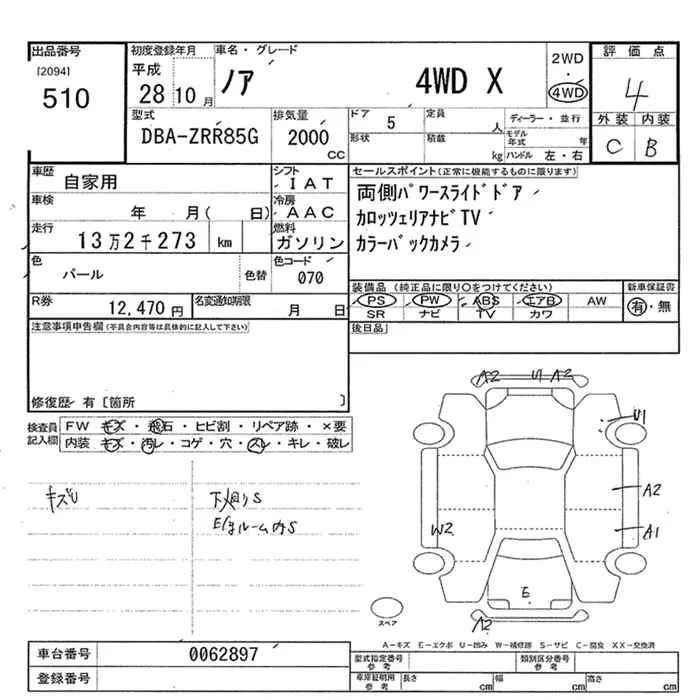 出品番号
[2094]
510
初度登録年月
平成
28 10月
車名・グレード
ノア 4WD X
2WD
・
4WD
評価点
4
外装 内装
C B
型式
DBA-ZRR85G
排気量
2000
CC
ドア 5
形状
定員 人
積載 kg
ディーラー・並行
モデル年式 年
ハンドル 左・右
車歴
自家用
シフト
IAT
車検
年 月( 日)
冷房
AAC
走行
13万2千273 km
燃料
ガソリン
色
パール
色替
色コード
070
R券
12,470円
名変通知期限
月 日
セールスポイント(正常に機能するものに限ります)
両側パワースライドドア
カロッツェリアナビTV
カラーバックカメラ
装備品 (純正品に限り○をつけてください)
新車保証書
PS PW ABS エアB AW
SR ナビ TV カワ
有・無
後日品
注意事項申告欄(不具合内容等は具体的に記入して下さい)
修復歴 有 [箇所 ]
検査員記入欄
FW キズ・飛石・ヒビ割・リペア跡・×要
内装 キズ・汚レ・コゲ・穴・スレ・キレ・破レ
キズU
下廻りS
E/gルーム内S
A2 U1 A2
U1
A2
A1
W2
E
A2
スペア
A−キズ E−エクボ U−凹み W−補修跡 S−サビ C−腐食 XX−交換済
車台番号
0062897
登録番号
型式指定番号
参考
類別区分番号
参考
車庫証明用
参考
長さ cm
幅 cm
高さ cm